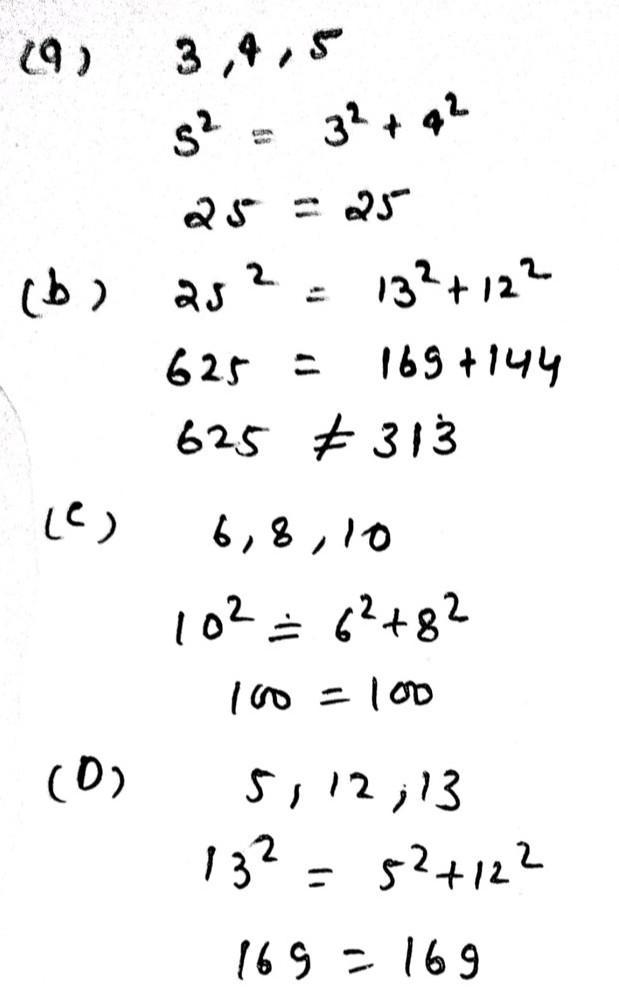 (a) 3, 4, 5
5² = 3² + 4²
25 = 25
(b) 25² = 13² + 12²
625 = 169 + 144
625 ≠ 313
(c) 6, 8, 10
10² = 6² + 8²
100 = 100
(D) 5, 12, 13
13² = 5² + 12²
169 = 169